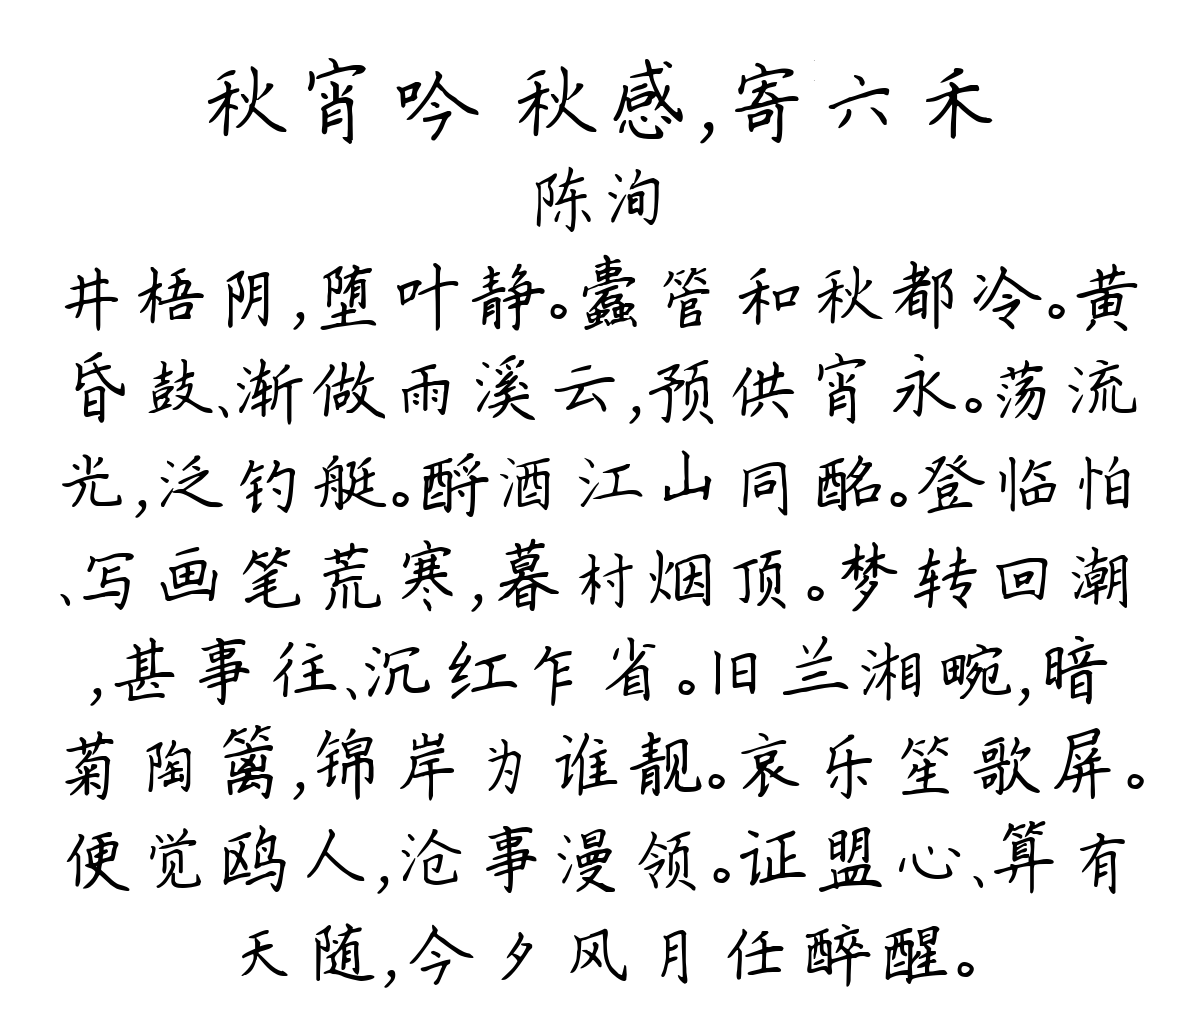 秋宵吟 秋感,寄六禾
陈洵
井梧阴,堕叶静。蠹管和秋都冷。黄
昏鼓、渐做雨溪云,预供宵永。荡流
光,泛钓艇。酹酒江山同酩。登临怕
、写画笔荒寒,暮村烟顶。梦转回潮
,甚事往、沉红乍省。旧兰湘畹,暗
菊陶篱,锦岸为谁靓。哀乐笙歌屏。
便觉鸥人,沧事漫领。证盟心、算有
天随,今夕风月任醉醒。